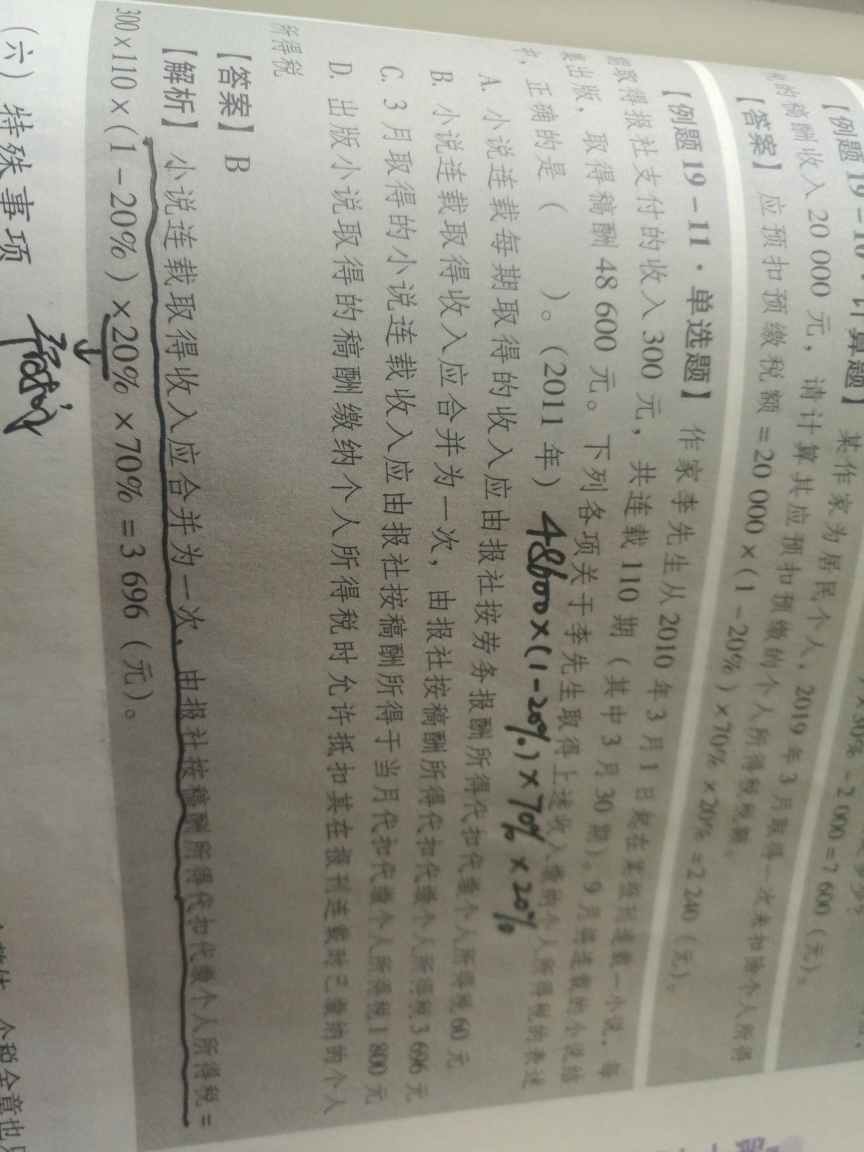 【例题19-10·计算题】某作家为居民个人，2019年3月取得一次未扣除个人所得
的稿酬收入20 000元，请计算其应预扣预缴的个人所得税税额。
【答案】应预扣预缴税额=20 000×(1-20%)×70%×20%=2 240（元）。
【例题19-11·单选题】作家李先生从2010年3月1日起在某报刊连载一小说，每
期取得报社支付的收入300元，共连载110期（其中3月30期）。9月将连载的小说结
集出版，取得稿酬48 600元。下列各项关于李先生取得上述收入缴纳个人所得税的表述
中，正确的是（ ）。（2011年）48600×(1-20%)×70%×20%
A. 小说连载每期取得的收入应由报社按劳务报酬所得代扣代缴个人所得税60元
B. 小说连载取得收入应合并为一次，由报社按稿酬所得代扣代缴个人所得税3 696元
C. 3月取得的小说连载收入应由报社按稿酬所得于当月代扣代缴个人所得税1 800元
D. 出版小说取得的稿酬缴纳个人所得税时允许抵扣其在报刊连载时已缴纳的个人
所得税
【答案】B
【解析】小说连载取得收入应合并为一次，由报社按稿酬所得代扣代缴个人所得税=
300×110×(1-20%)×20%×70%=3 696（元）。
（六）特殊事项